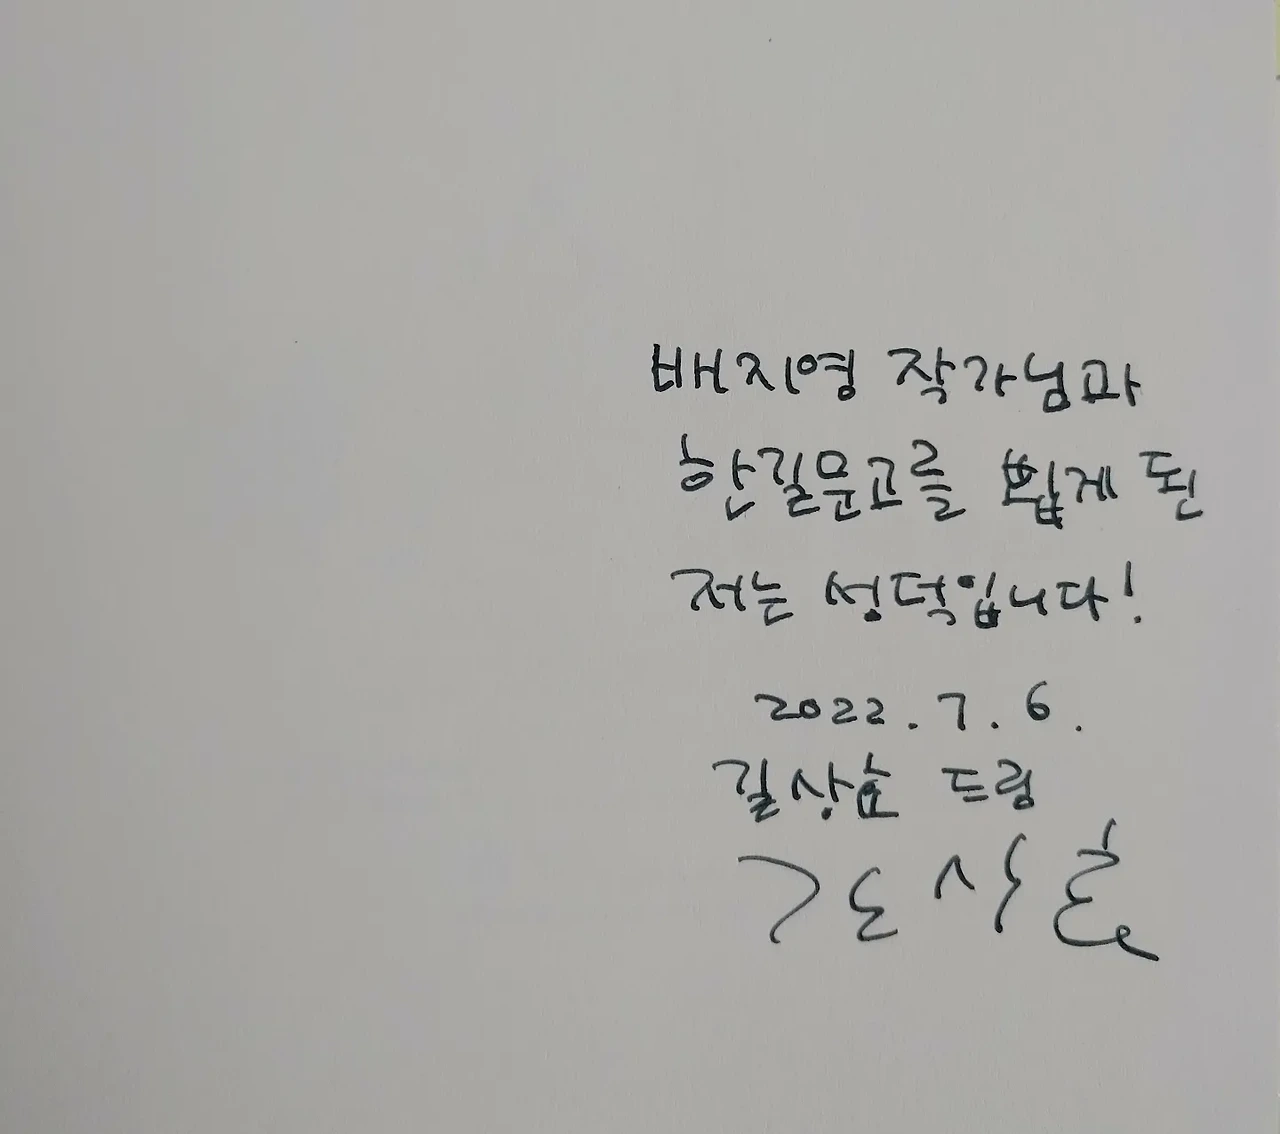 배지영 작가님과
한길문고를 뵙게 된
저는 성덕입니다!
2022.7.6.
길상호 드림
길상호